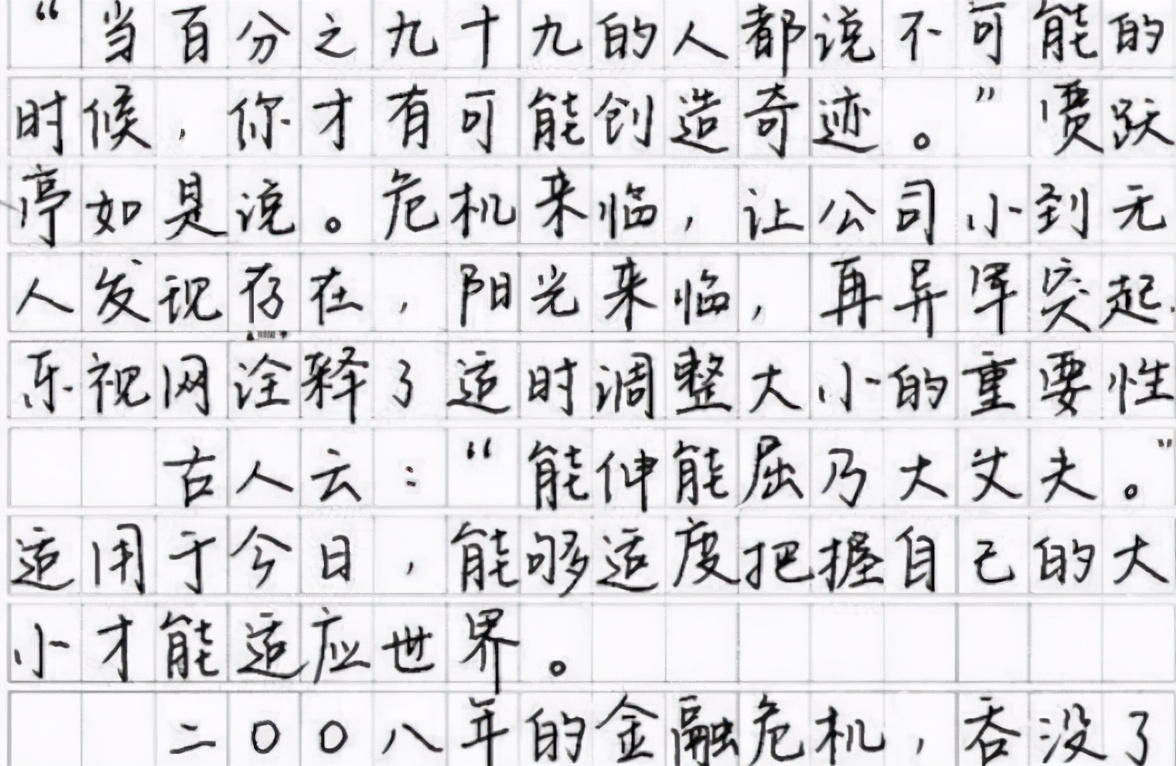 “当百分之九十九的人都说不可能的
时候，你才有可能创造奇迹。”贾跃
亭如是说。危机来临，让公司小到无
人发现存在，阳光来临，再异军突起
乐视网诠释了适时调整大小的重要性
古人云：“能伸能屈乃大丈夫。”
适用于今日，能够适度把握自己的大
小才能适应世界。
二〇〇八年的金融危机，吞没了